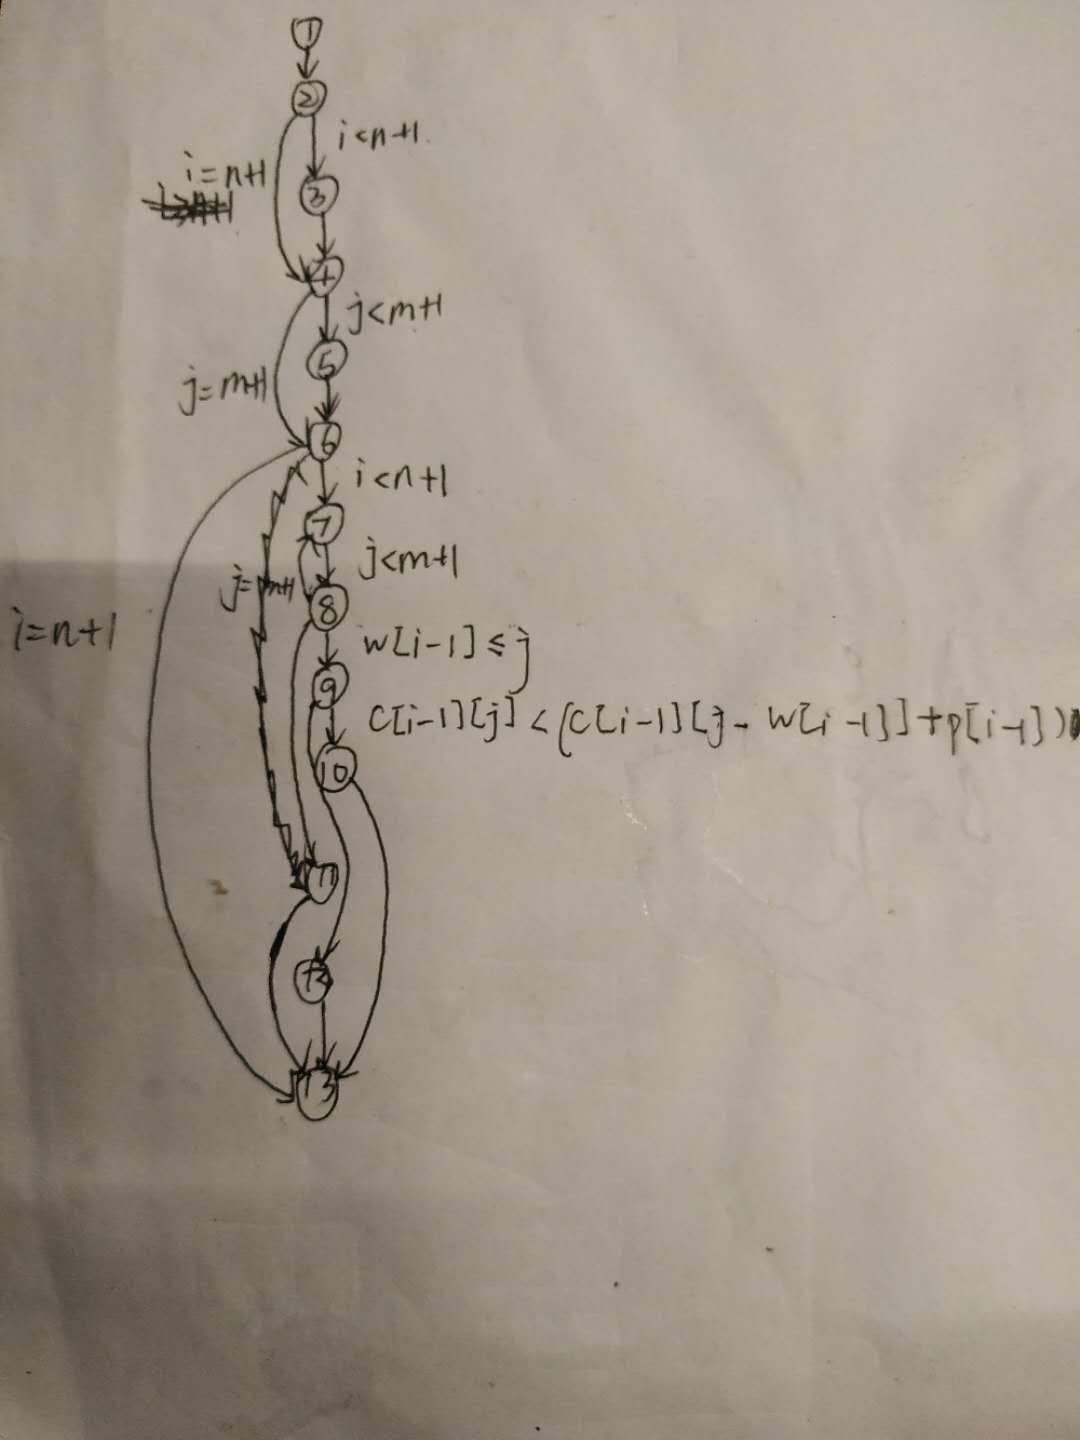 1
2
i<n+1
i=n+1
3
4
j<m+1
5
j=m+1
6
i<n+1
7
j<m+1
j=m+1
8
i=n+1
w[i-1]≤j
9
C[i-1][j]<(C[i-1][j-w[i-1]]+p[i-1])
10
11
12
13